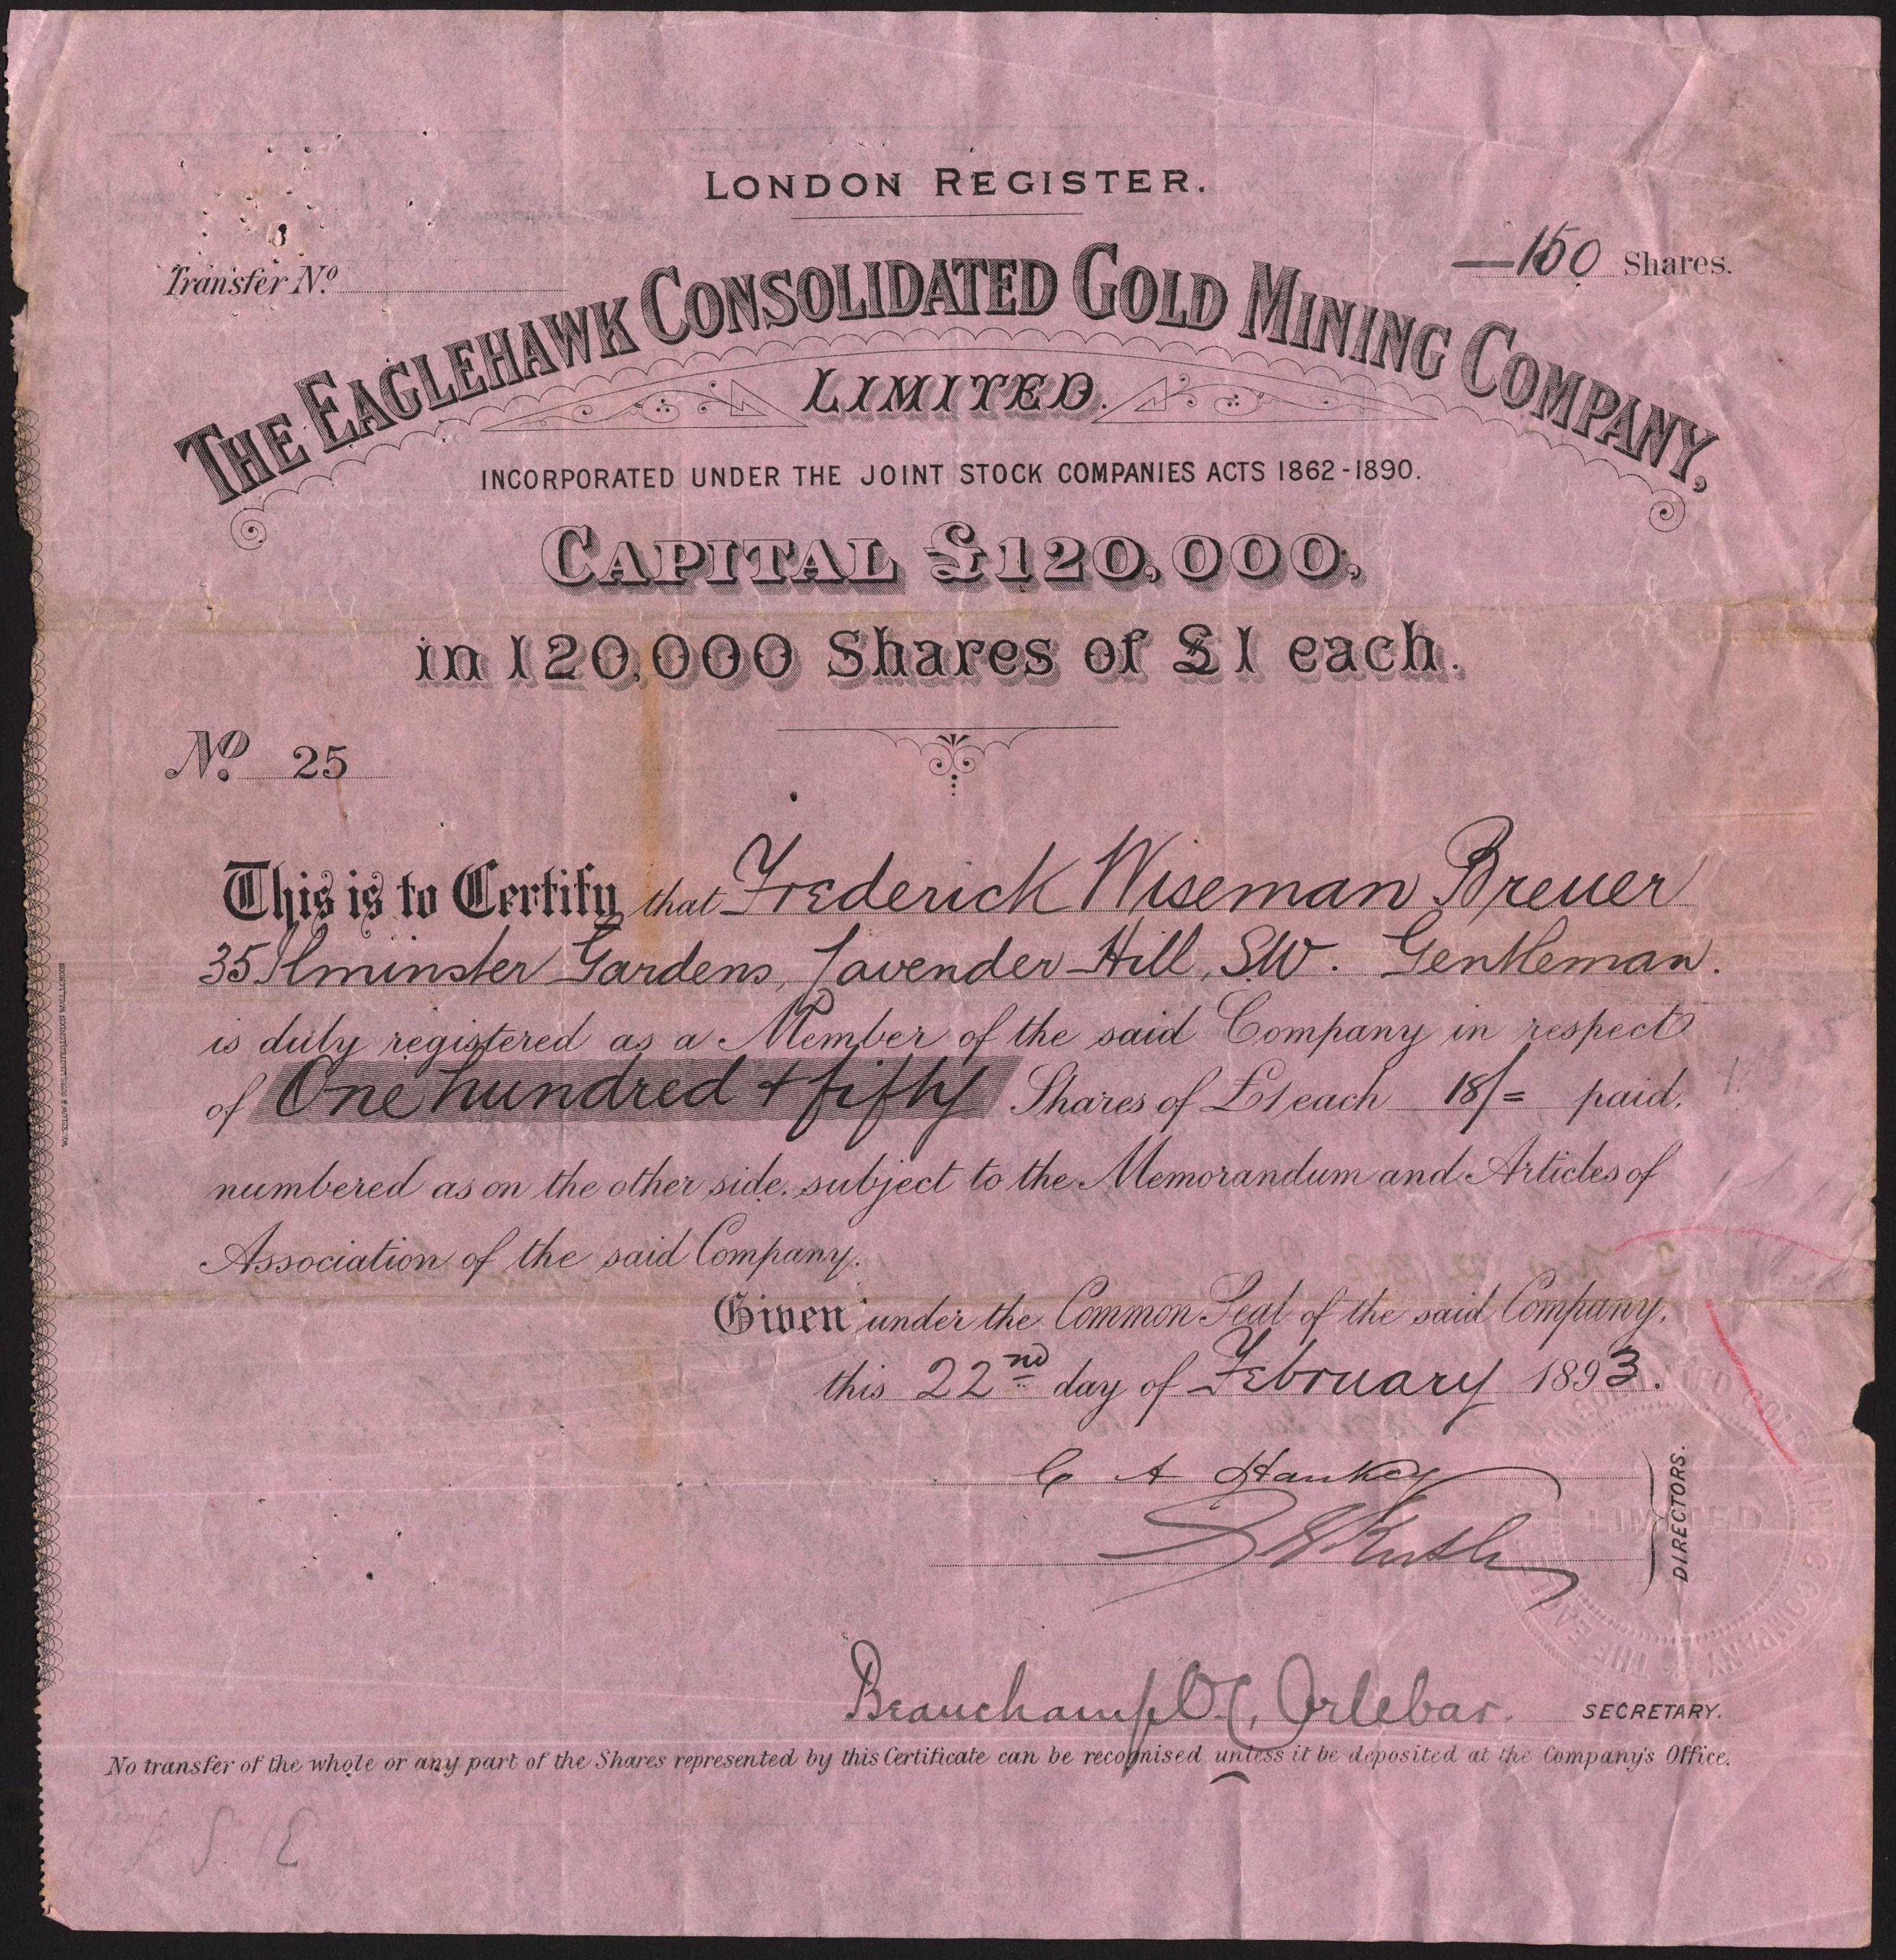 LONDON REGISTER.
Transfer No.
—150 Shares.
THE EAGLEHAWK CONSOLIDATED GOLD MINING COMPANY,
LIMITED.
INCORPORATED UNDER THE JOINT STOCK COMPANIES ACTS 1862-1890.
CAPITAL £120,000,
in 120,000 Shares of £1 each.
No. 25
This is to Certify that Frederick Wiseman Breuer
35 Ilminster Gardens, Lavender Hill, S.W. Gentleman.
is duly registered as a Member of the said Company in respect
of One hundred + fifty Shares of £1 each 18/= paid.
numbered as on the other side. subject to the Memorandum and Articles of
Association of the said Company.
Given under the Common Seal of the said Company,
this 22nd day of February 1893.
C A Hankey
DIRECTORS.
LIMITED
Beauchamp Orlebar.
SECRETARY.
No transfer of the whole or any part of the Shares represented by this Certificate can be recognised unless it be deposited at the Company's Office.